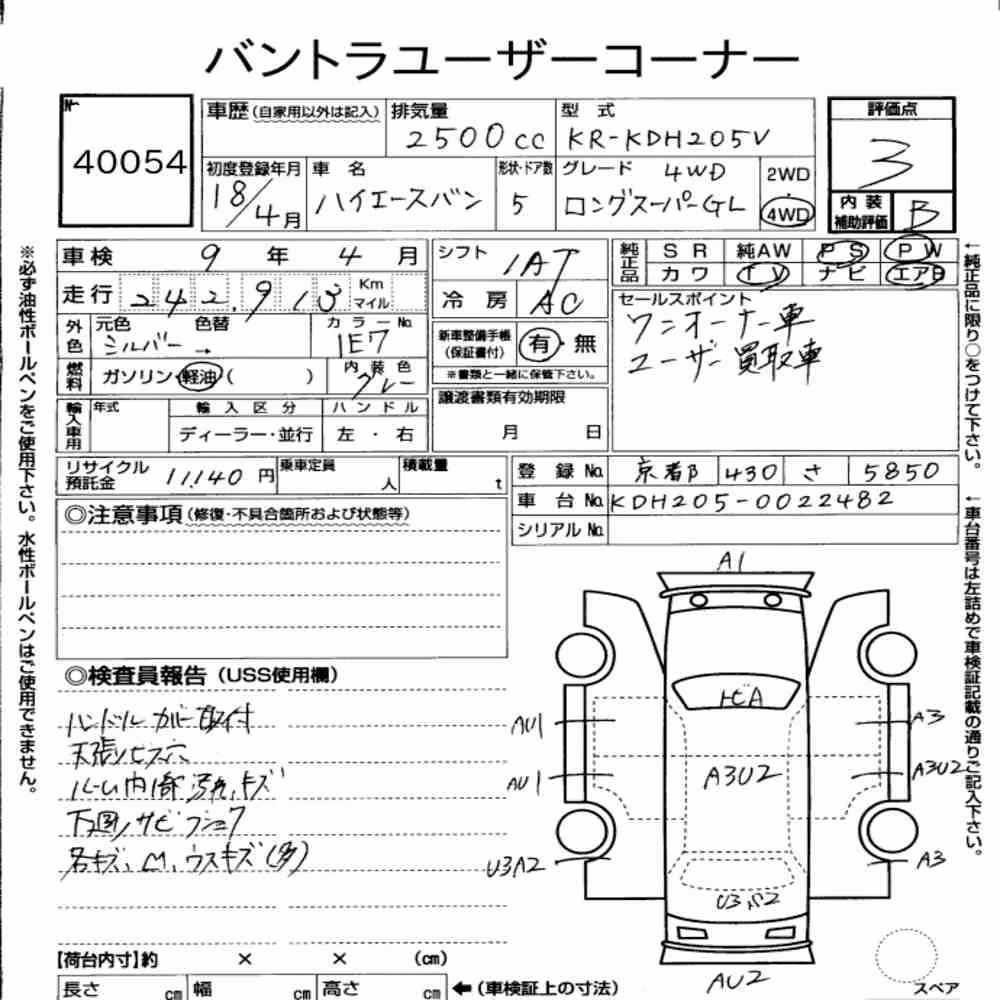 バントラユーザーコーナー
№
40054
車歴(自家用以外は記入)
排気量
2500cc
型式
KR-KDH205V
評価点
3
内装
補助評価
B
初度登録年月
18/4月
車名
ハイエースバン
形状・ドア数
5
グレード 4WD
ロングスーパーGL
2WD
・
4WD
車検 9年 4月
走行 242,913 Km
マイル
外色
元色 色替
シルバー →
カラーNo.
1E7
燃料
ガソリン・軽油( )
内装色
グレー
輸入車用
年式
輸入区分
ディーラー・並行
ハンドル
左・右
シフト
IAT
冷房
AC
新車整備手帳
(保証書付)
有・無
※書類と一緒に保管下さい。
譲渡書類有効期限
月 日
純正品
SR 純AW PS PW
カワ TV ナビ エアB
セールスポイント
ワンオーナー車
ユーザー買取車
リサイクル
預託金
11,140円
乗車定員
人
積載量
t
登録No. 京都 430 さ 5850
車台No. KDH205-0022482
シリアルNo.
◎注意事項(修復・不具合箇所および状態等)
◎検査員報告(USS使用欄)
ハンドルカバー取付
天張ビス穴
ルーム内 汚れ、キズ
下回りサビ
各キズ、凹、ウスキズ(多)
A1
トビA
AU1
A3
AU1
A3U2
A3U2
U3A2
A3
U3,A2
AU2
スペア
【荷台内寸】約 × × (cm)
長さ cm 幅 cm 高さ cm ←(車検証上の寸法)
※必ず油性ボールペンをご使用下さい。水性ボールペンはご使用できません。
←純正品に限り○をつけて下さい。
←車台番号は左詰めで車検証記載の通りご記入下さい。